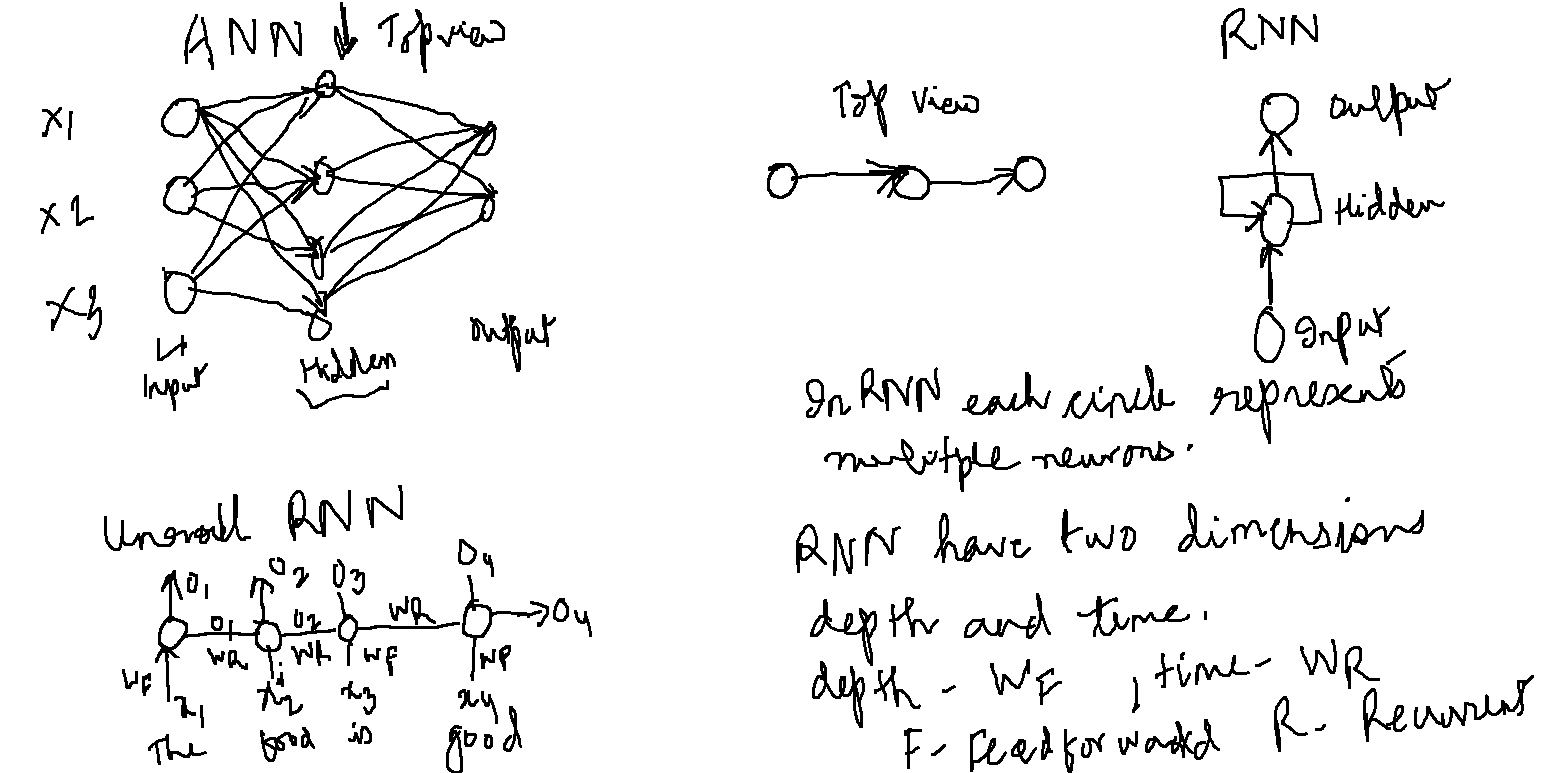 ANN ↓ Top view
x1
x2
x3
Input
Hidden
output
Top view
RNN
output
Hidden
Input
In RNN each circle represents
multiple neurons.
Unroll RNN
O1 O2 O3 O4
O1 O2 WR O4
WR WR
WF WF WF
x1 x2 x3 x4
The food is good
RNN have two dimensions
depth and time.
depth - WF , time - WR
F - Feedforward R - Recurrent